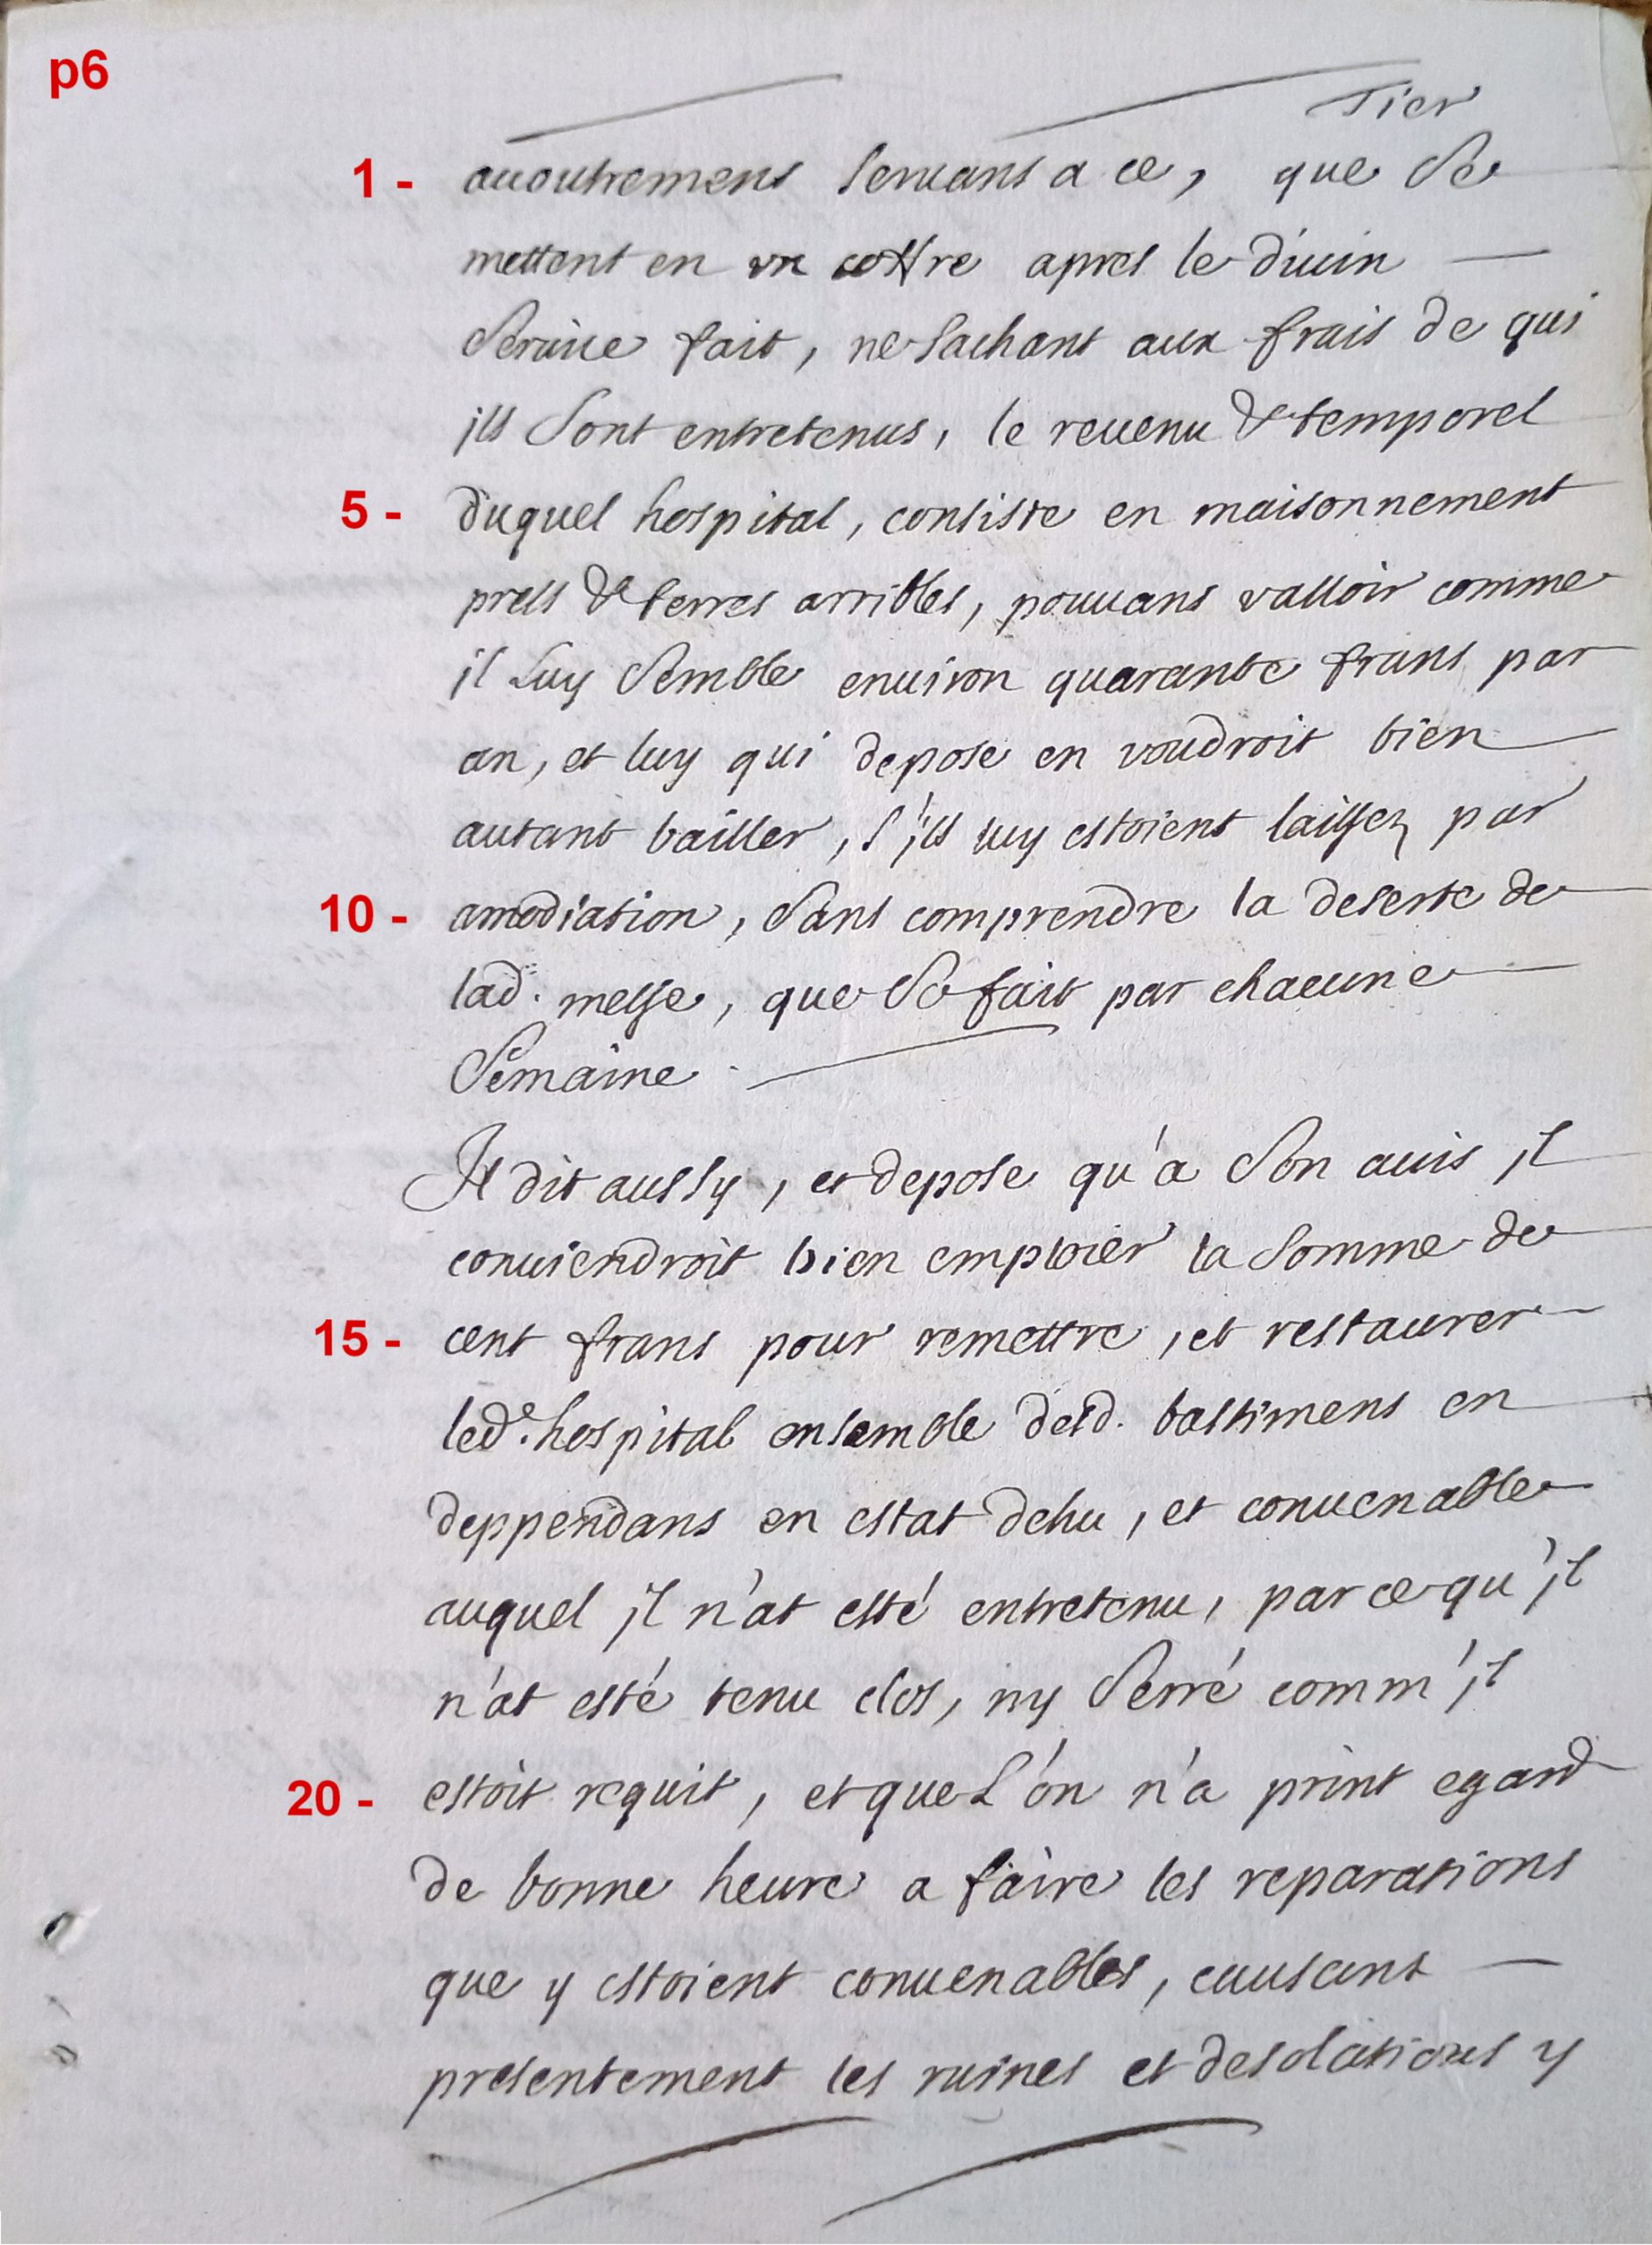 p6
Tier
1 - auoutremens seruans a ce, que se
mettent en un coffre apres le diuin
seruice fait, ne sachant aux frais de qui
ils sont entretenus, le reuenu & temporel
5 - duquel hospital, consiste en maisonnement
prels & terres arribles, pouuans valloir comme
il luy semble enuiron quarante frans par
an, et luy qui depose en voudroit bien
autant bailler, s'ils luy estoient laissez par
10 - amodiation, sans comprendre la deserte de
lad. messe, que se fait par chacune
semaine.
Il dit aussy, et depose qu'a son auis il
conuiendroit bien emploier la somme de
15 - cent frans pour remettre, et restaurer
led. hospital ensemble desd. bastimens en
deppendans en estat dehu, et conuenable
auquel il n'at esté entretenu, par ce qu'il
n'at esté tenu clos, ny serré comm'il
20 - estoit requit, et que l'on n'a print egard
de bonne heure a faire les reparations
que y estoient conuenables, causant
presentement les ruines et desolations y